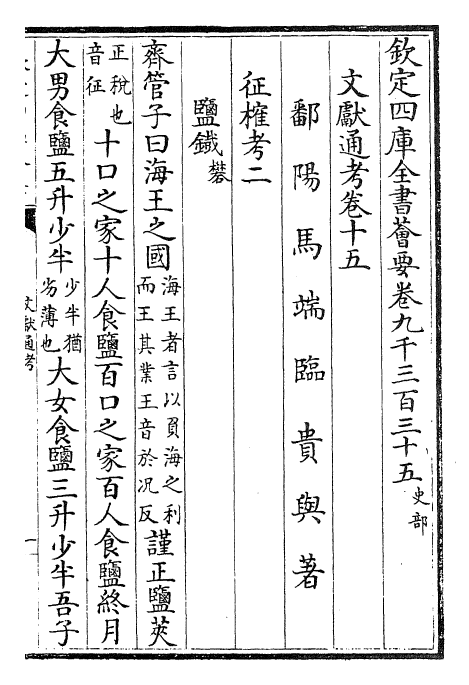 欽定四庫全書薈要卷九千三百三十五 史部
文獻通考卷十五
鄱陽馬端臨貴與著
征榷考二
鹽鐵 礬
齊管子曰海王之國 海王者言以負海之利而王其業王音於况反 謹正鹽莢
正稅也音征 十口之家十人食鹽百口之家百人食鹽終月
大男食鹽五升少半 少半猶劣薄也 大女食鹽三升少半吾子
文獻通考
一